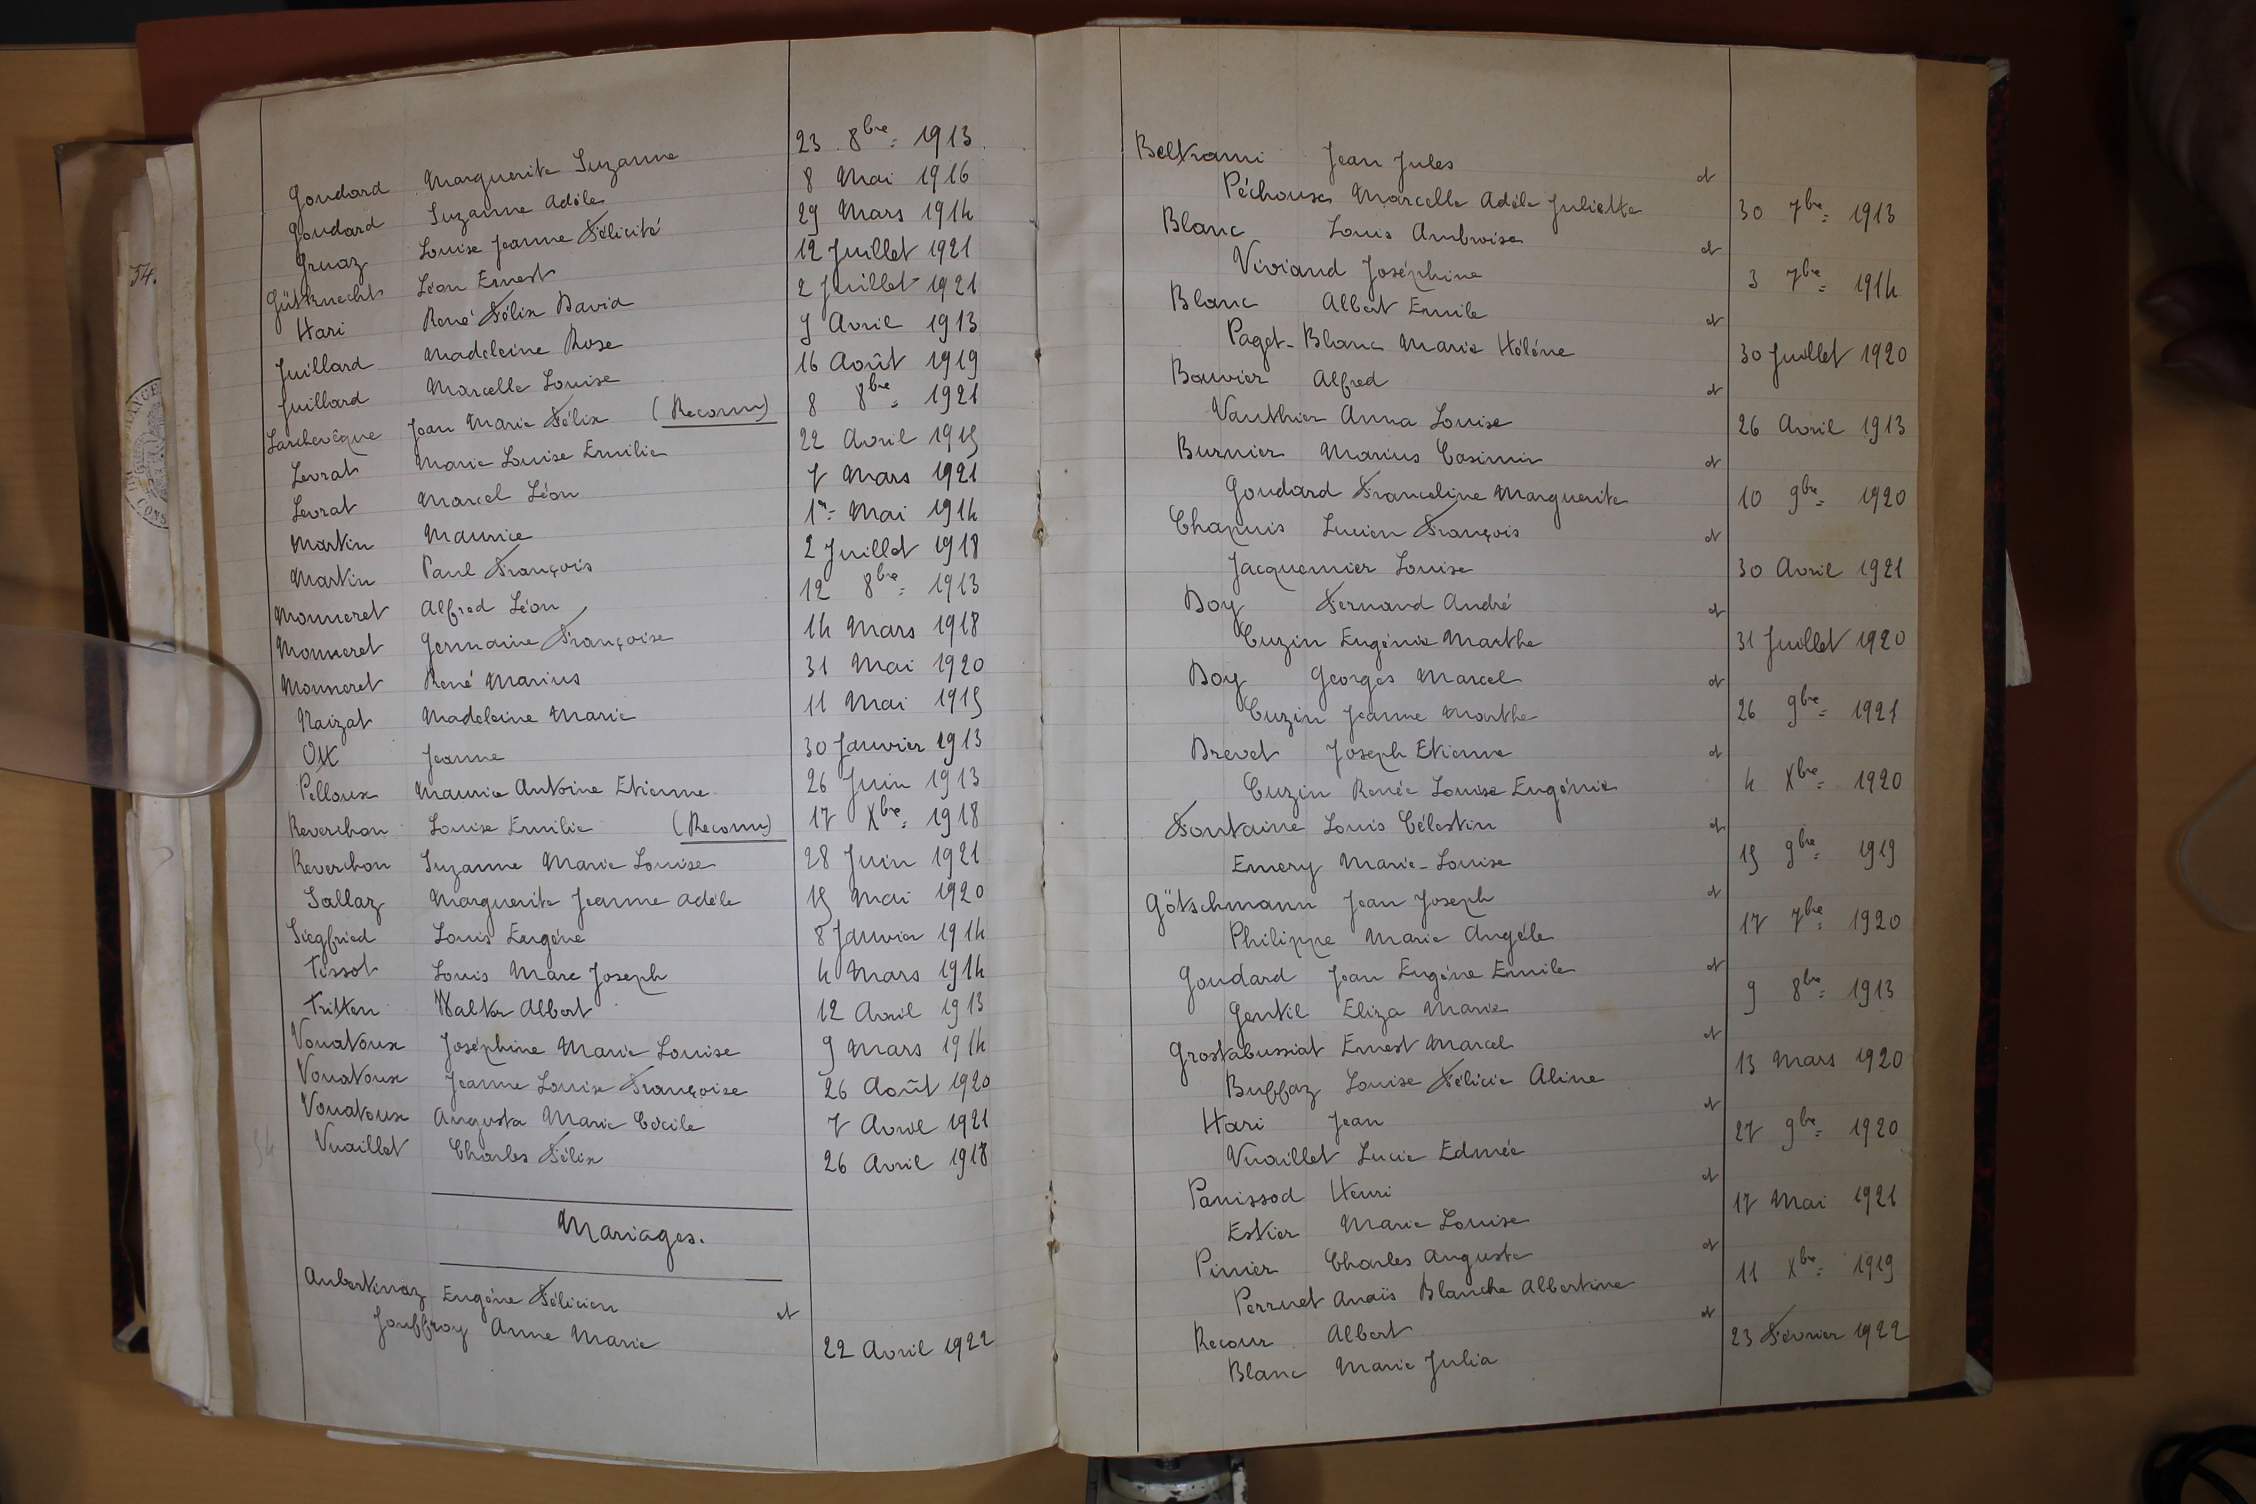 54.
Goudard Marguerite Suzanne 23 8bre= 1913.
Goudard Suzanne Adèle 8 Mai 1916
Gruaz Louise Jeanne Félicité 29 Mars 1914
Gütknecht Léon Ernest 12 Juillet 1921
Hari René Félix David 2 Juillet 1921
Juillard Madeleine Rose 9 Avril 1913
Juillard Marcelle Louise 16 Août 1919
Larchevêque Jean Marie Félix (Reconnu) 8 8bre= 1921
Levrat Marie Louise Emilie 22 Avril 1915
Levrat Marcel Léon 7 Mars 1921
Martin Maurice 1er= Mai 1914
Martin Paul François 2 Juillet 1918
Monneret Alfred Léon 12 8bre= 1913
Monneret Germaine Françoise 14 Mars 1918
Monneret René Marius 31 Mai 1920
Naizat Madeleine Marie 11 Mai 1915
Ott Jeanne 30 Janvier 1913
Pelloux Maurice Antoine Etienne 26 Juin 1913
Reverchon Louise Emilie (Reconnu) 17 Xbre= 1918
Reverchon Suzanne Marie Louise 28 Juin 1921
Sallaz Marguerite Jeanne Adèle 15 Mai 1920
Siegfried Louis Eugène 8 Janvier 1914
Tissot Louis Marc Joseph 4 Mars 1914
Tritten Walter Albert 12 Avril 1913
Vouatoux Joséphine Marie Louise 9 Mars 1914
Vouatoux Jeanne Louise Françoise 26 Août 1920
Vouatoux Augusta Marie Cécile 7 Avril 1921
Vuaillet Charles Félix 26 Avril 1918
Mariages.
Aubertinaz Eugène Félicien et
Jouffroy Anne Marie 22 Avril 1922
Beltrami Jean Jules et
Péchoux Marcelle Adèle Juliette 30 7bre= 1913
Blanc Louis Ambroise et
Viviand Joséphine 3 7bre= 1914
Blanc Albert Emile et
Paget-Blanc Marie Hélène 30 Juillet 1920
Bouvier Alfred et
Vauthier Anna Louise 26 Avril 1913
Burnier Marius Casimir et
Goudard Franceline Marguerite 10 9bre= 1920
Chapuis Lucien François et
Jacquemier Louise 30 Avril 1921
Doy Fernand André et
Cuzin Eugénie Marthe 31 Juillet 1920
Doy Georges Marcel et
Cuzin Jeanne Marthe 26 9bre= 1921
Drevet Joseph Etienne et
Cuzin Renée Louise Eugénie 4 Xbre= 1920
Fontaine Louis Célestin et
Emery Marie-Louise 15 9bre= 1919
Götschmann Jean Joseph et
Philippe Marie Angèle 17 7bre= 1920
Goudard Jean Eugène Emile et
Gentil Eliza Marie 9 8bre= 1913
Grostabussiat Ernest Marcel et
Buffaz Louise Félicie Aline 13 Mars 1920
Hari Jean et
Vuaillet Lucie Edmée 27 9bre= 1920
Panissod Henri et
Estier Marie Louise 17 Mai 1921
Pinier Charles Auguste et
Perruet Anaïs Blanche Albertine 11 Xbre= 1919
Recour Albert et
Blanc Marie Julia 23 Février 1922